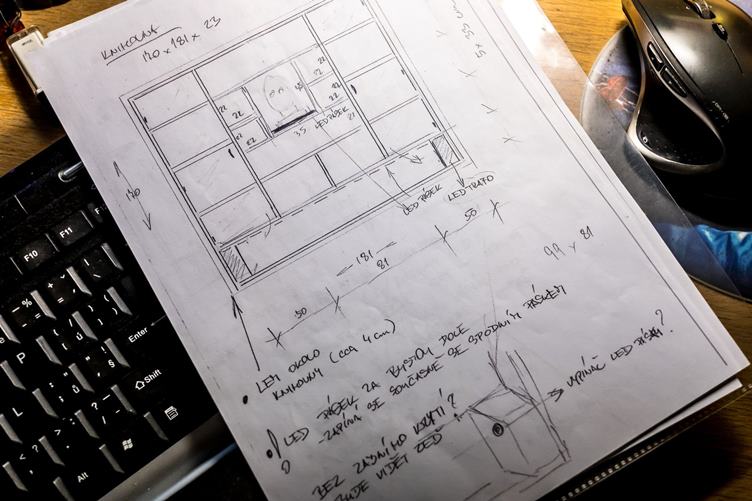 KNIHOVNA
170 x 181 x 23
5 x 35 cm
22
22
22
22
22
22
22
22
35
LED PÁSEK
21
170
LED PÁSEK
LED TRAFO
50
181
81
50
99 x 81
• LEM OKOLO
KNIHOVNY (CCA 4 cm)
LED PÁSEK ZA BYSTOU DOLE
- ZAPÍNÁ SE SOUČASNĚ SE SPODNÍM PÁSKEM
BEZ ZADNÍHO KRYTÍ?
BUDE VIDĚT ZEĎ
VYPÍNAČ LED PÁSKŮ?
F10
F11
P
Enter
Shift
Alt